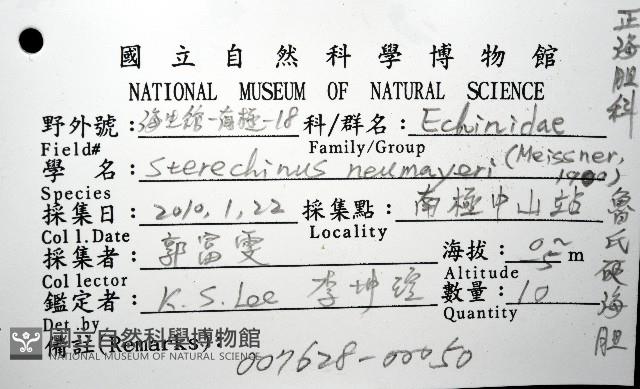 國立自然科學博物館
NATIONAL MUSEUM OF NATURAL SCIENCE
野外號：海生館-南極-18 科/群名：Echinidae
Field# Family/Group
學 名：Sterechinus neumayeri (Meissner, 1900)
Species
採集日：2010,1,22 採集點：南極中山站
Coll.Date Locality
採集者：郭富雯 海拔：0~5 m
Collector Altitude
鑑定者：K.S. Lee 李坤瑄 數量：10
Det.by Quantity
備註(Remarks)：007628-00050
正海胆科
魯氏硬海胆
國立自然科學博物館
NATIONAL MUSEUM OF NATURAL SCIENCE